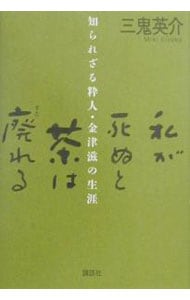 三鬼英介
Miki Eisuke
知られざる粋人・金津滋の生涯
私が
死ぬと
茶は
廃れる
すた
講談社